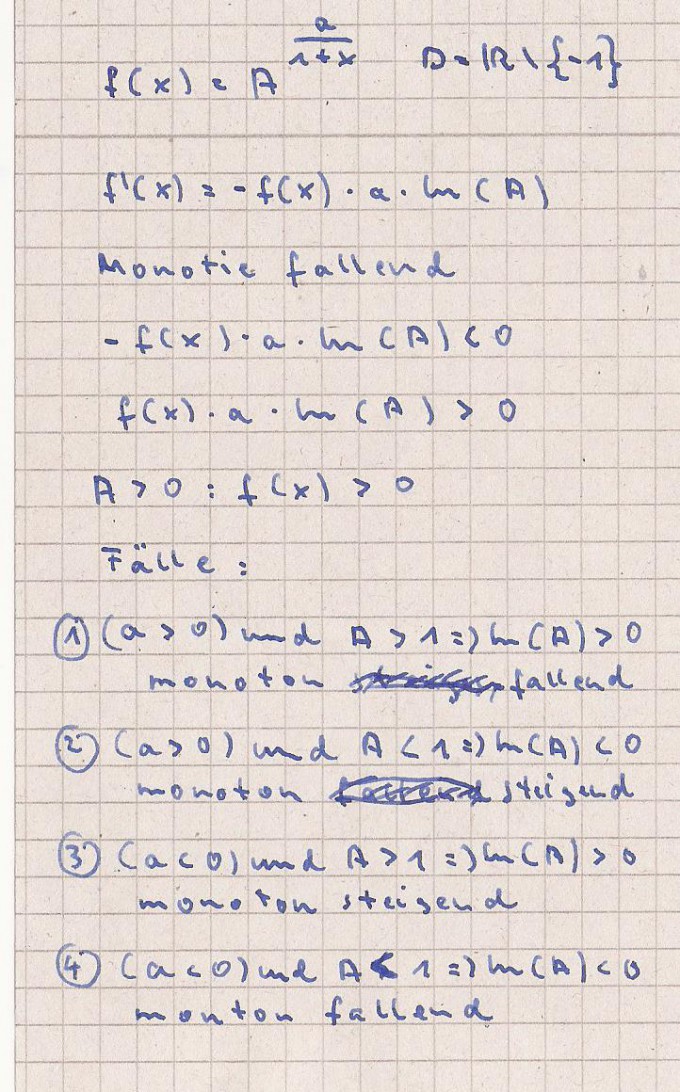 f(x) = A^(a/(1+x)) D = ℝ \ {-1}
f'(x) = -f(x) · a · ln(A)
Monotie fallend
- f(x) · a · ln(A) < 0
f(x) · a · ln(A) > 0
A > 0 : f(x) > 0
Fälle :
① (a > 0) und A > 1 => ln(A) > 0
monoton fallend
② (a > 0) und A < 1 => ln(A) < 0
monoton steigend
③ (a < 0) und A > 1 => ln(A) > 0
monoton steigend
④ (a < 0) und A < 1 => ln(A) < 0
monton fallend